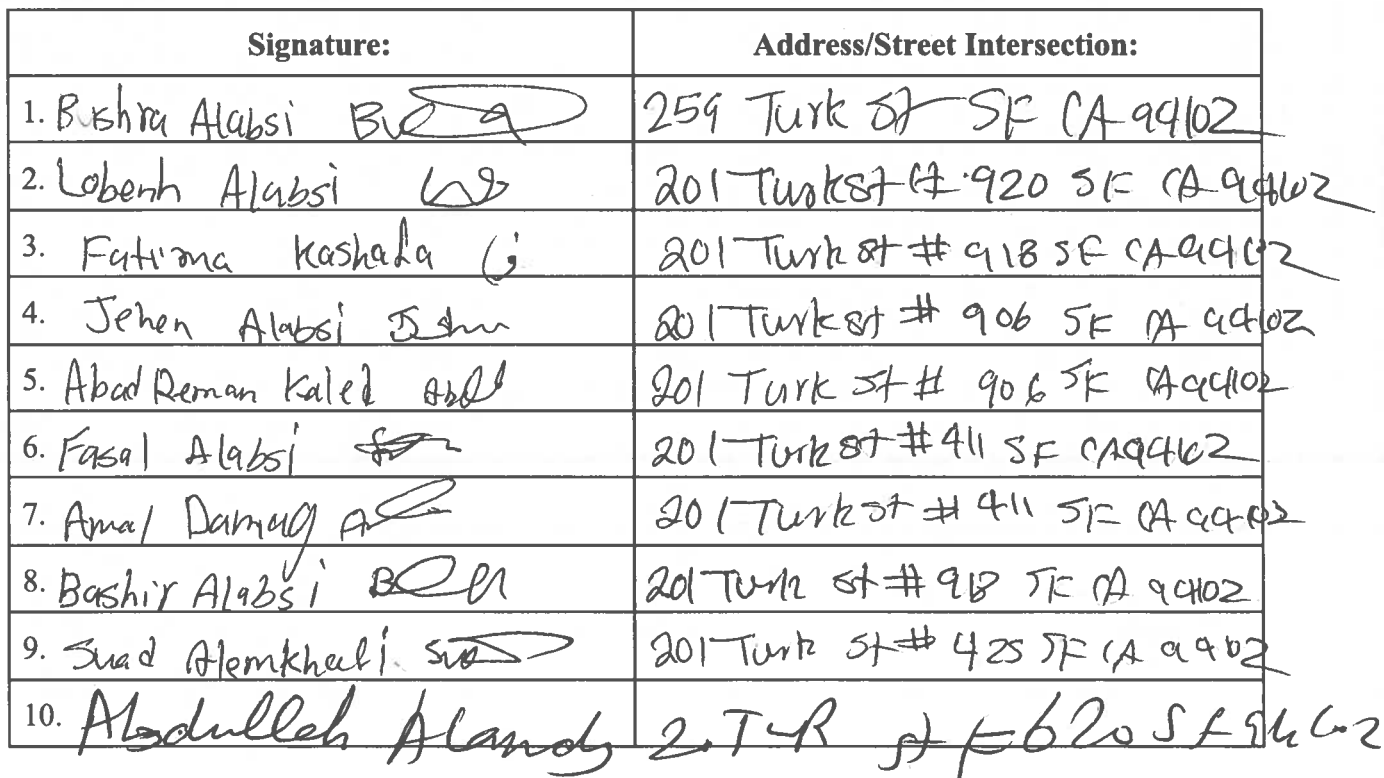 Signature: Address/Street Intersection:
1. Bushra Alabsi 259 Turk St SF CA 94102
2. Lobenh Alabsi 201 Turk st # 920 SF CA 94102
3. Fatima Kashada 201 Turk st # 918 SF CA 94102
4. Jehen Alabsi 201 Turk st # 906 SF CA 94102
5. Abad Reman Kaled 201 Turk st # 906 SF CA 94102
6. Fasal Alabsi 201 Turk st # 411 SF CA 94102
7. Amal Damag 201 Turk st # 411 SF CA 94102
8. Bashir Alabsi 201 Turk st # 918 SF CA 94102
9. Suad 201 Turk st # 425 SF CA
10. Abdulleh 620 SF